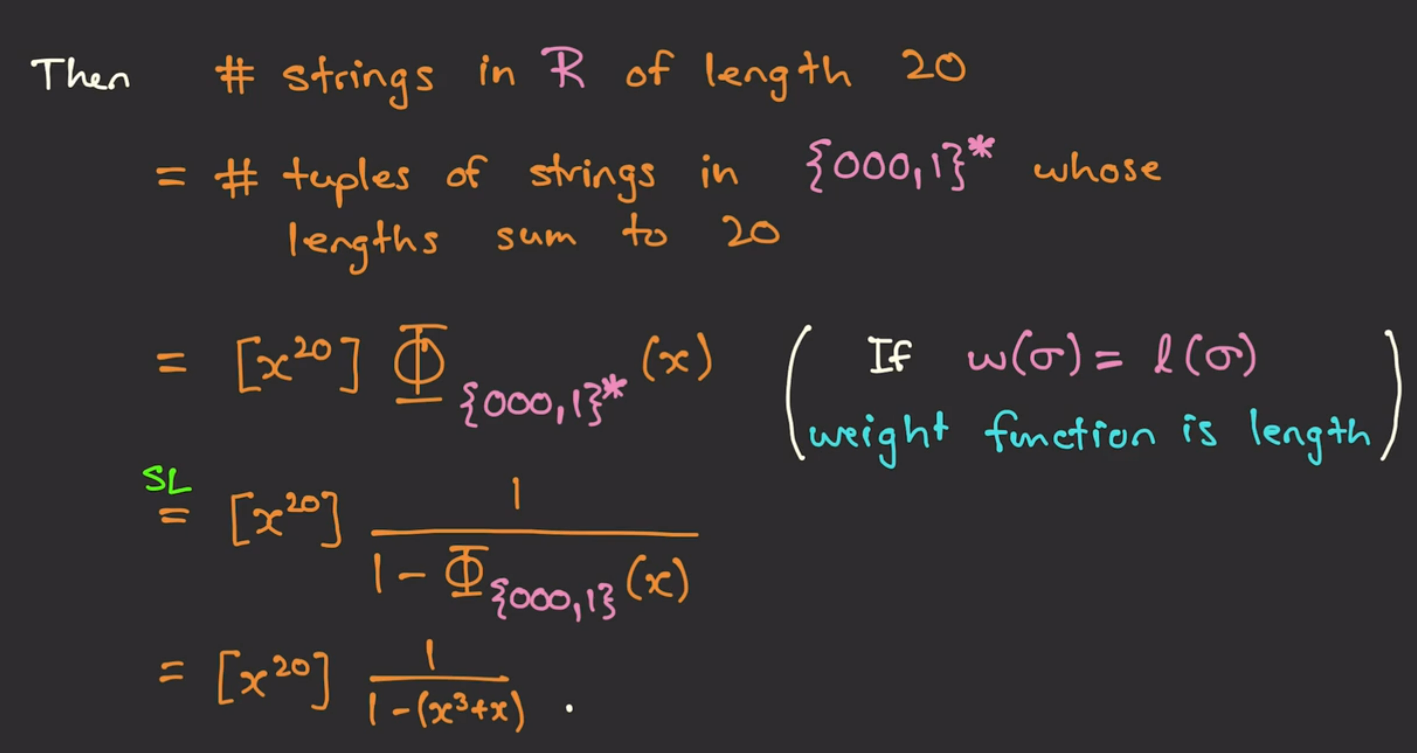 Then # strings in R of length 20
= # tuples of strings in {000,1}* whose
lengths sum to 20
= [x²⁰] Φ_{000,1}* (x) ( If w(σ) = l(σ)
weight function is length )
SL
= [x²⁰] 1 / (1 - Φ_{000,1} (x))
= [x²⁰] 1 / (1-(x³+x)) .